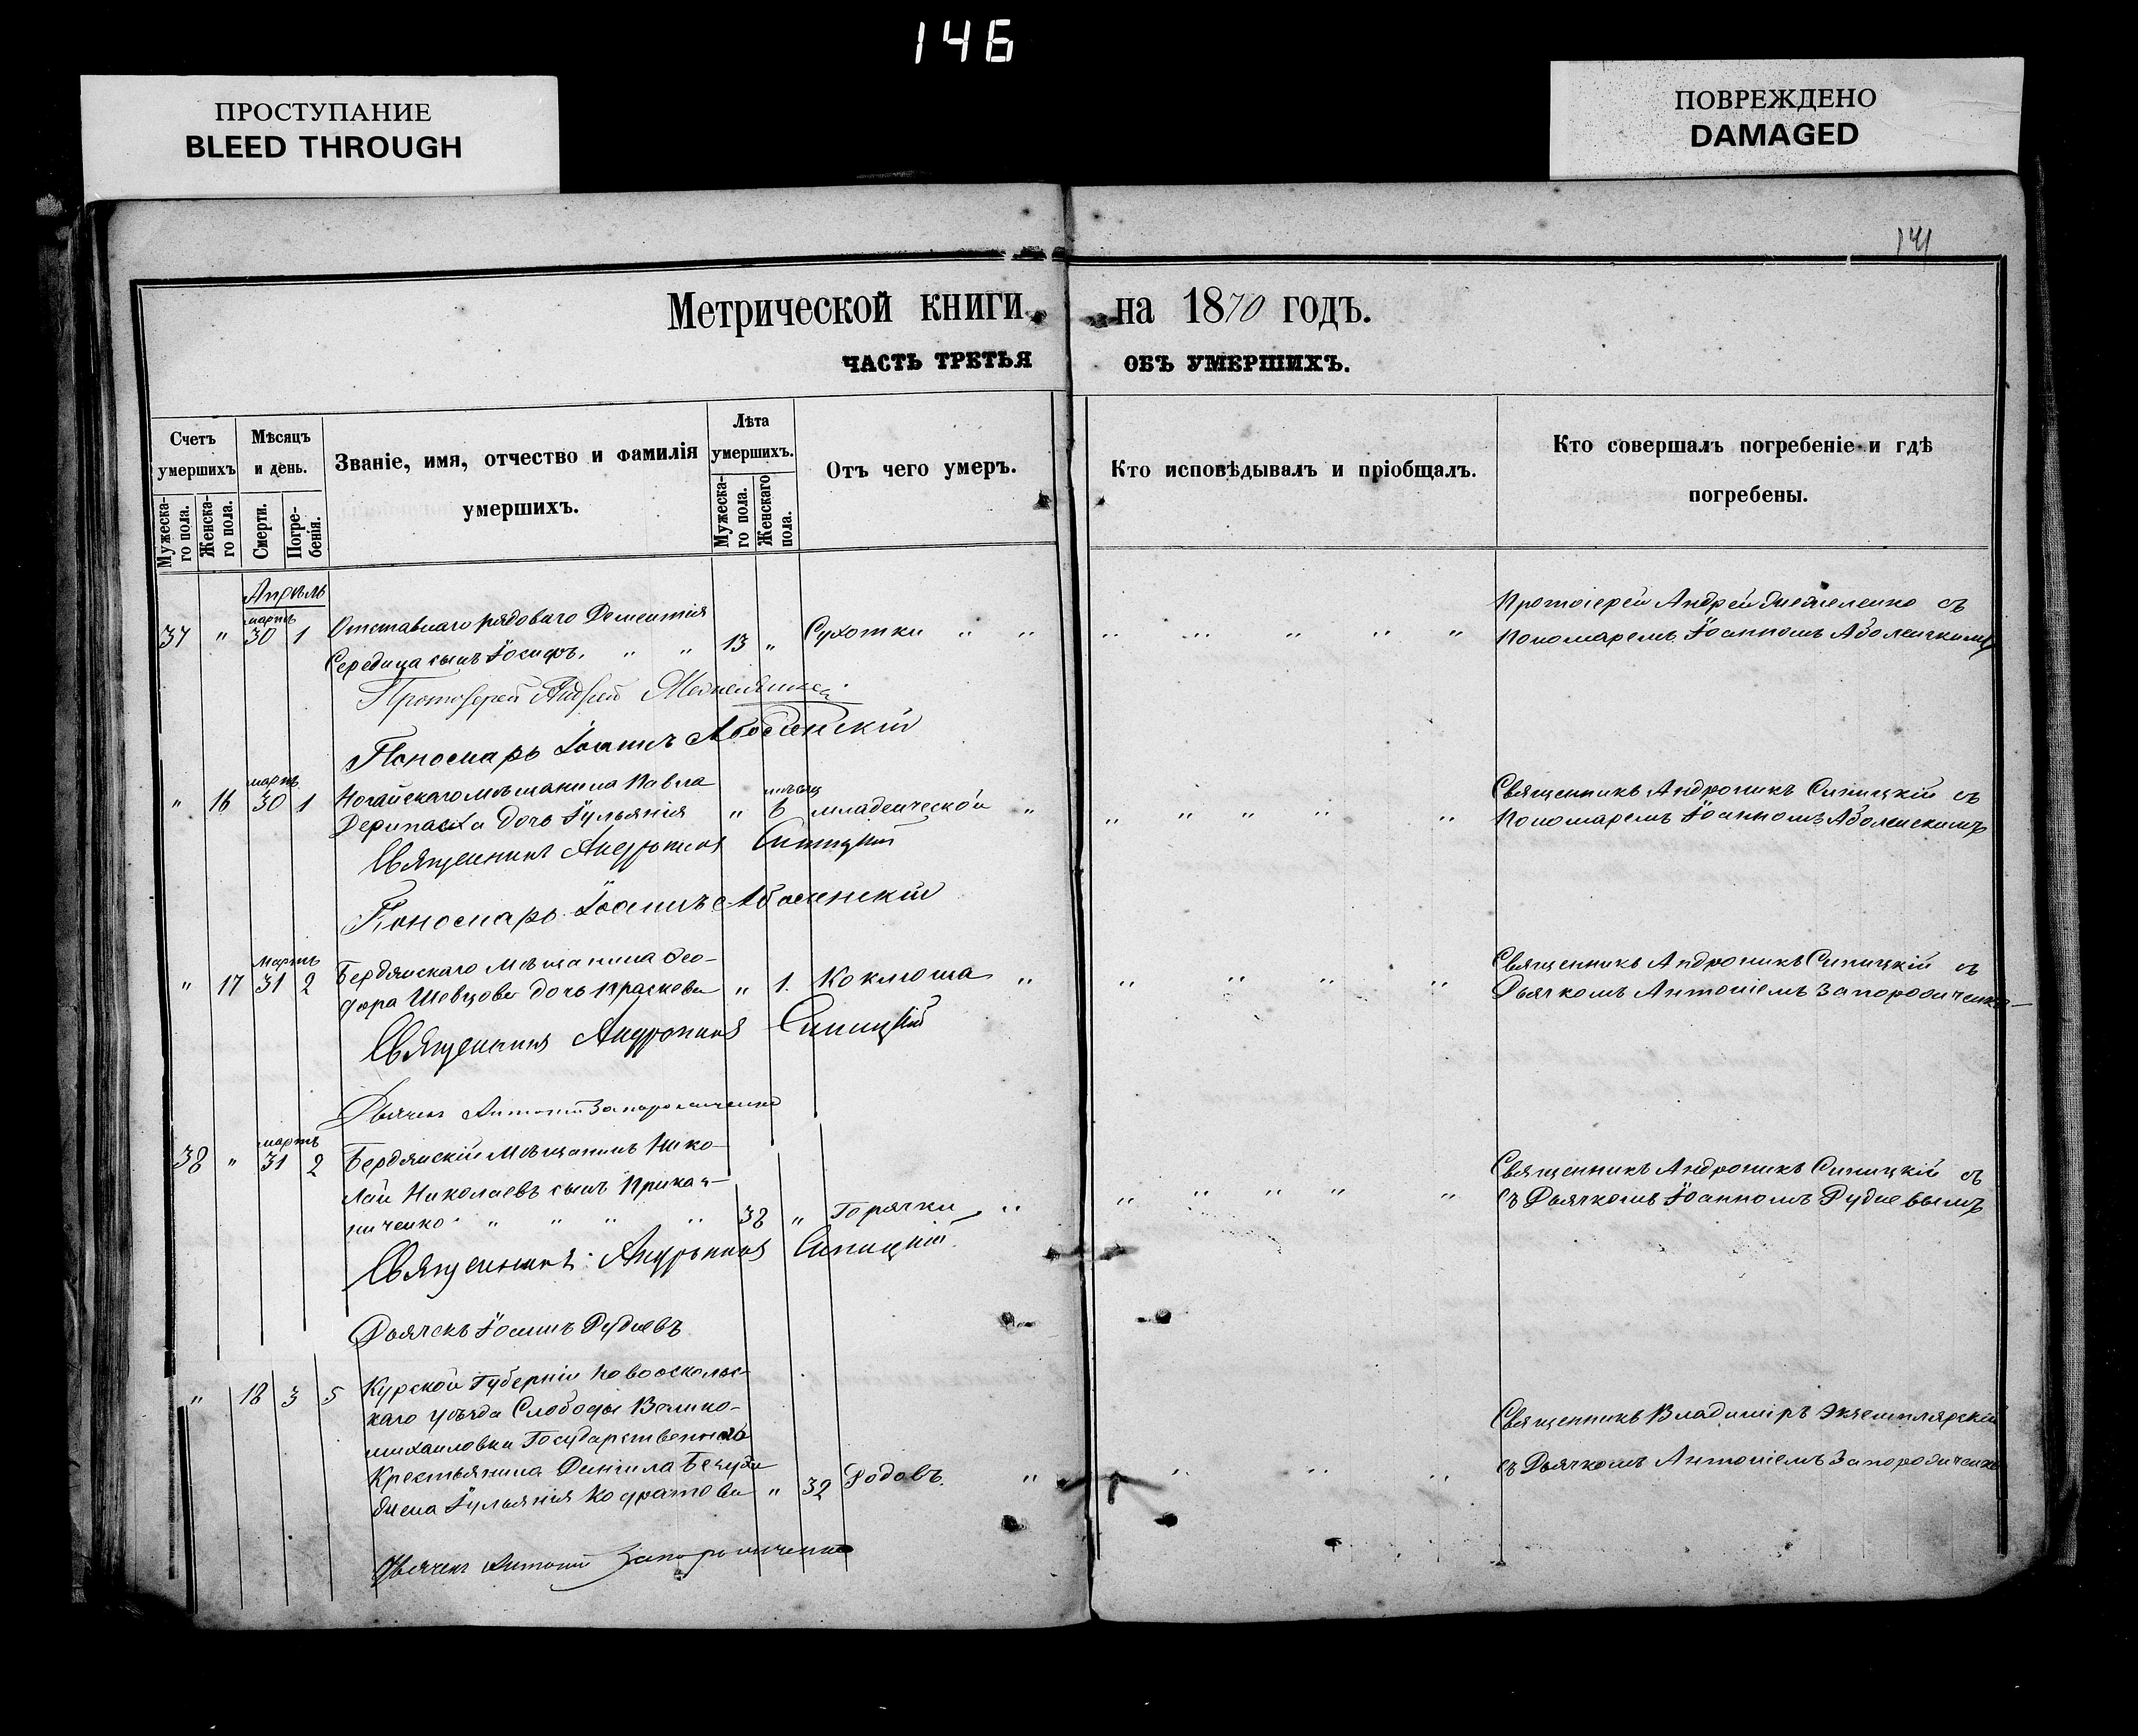 146
ПРОСТУПАНИЕ
BLEED THROUGH
ПОВРЕЖДЕНО
DAMAGED
141
Метрической книги на 1870 годъ.
ЧАСТЬ ТРЕТЬЯ ОБЪ УМЕРШИХЪ.
Счетъ умершихъ
Мужеска-го пола.
Женска-го пола.
Мѣсяцъ и день.
Смерти.
Погре-бенія.
Званіе, имя, отчество и фамилія
умершихъ.
Лѣта умершихъ.
Мужеска-го пола.
Женскаго пола.
Отъ чего умеръ.
Кто исповѣдывалъ и пріобщалъ.
Кто совершалъ погребеніе и гдѣ
погребены.
Апрѣль
мартъ
37 " 30 1 Отставнаго рядоваго Дементія
Середица сынъ Іосифъ. " " 13 " Сухотки " "
Протоіерей Андрей съ
Пономаремъ Іоанномъ
Протоіерей Андрей
Пономарь Іоаннъ
мартъ
" 16 30 1 Ногайскаго мѣщанина Павла
дочь Іульянія " 6 младенческой "
Священникъ Андроникъ Синицкій съ
Пономаремъ Іоанномъ
Священникъ Андроникъ Синицкій
Пономарь Іоаннъ
Мартъ
" 17 31 2 Бердянскаго мѣщанина Ѳео-
дора Шевцова дочь Праскева " 1. Коклюша "
Священникъ Андроникъ Синицкій съ
Дьячкомъ Антоніемъ
Священникъ Андроникъ Синицкій
Дьячекъ Антоній
мартъ
38 " 31 2 Бердянскій мѣщанинъ Нико-
лай Николаевъ сынъ
38 " Горячки "
Священникъ Андроникъ Синицкій съ
съ Дьячкомъ Іоанномъ Рудневымъ
Священникъ Андроникъ Синицкій
Дьячекъ Іоаннъ Рудневъ
" 18 3 5 Курской Губерніи Новооскольс-
каго уѣзда Слободы Велико-
михаиловки Государственнаго
Крестьянина Данила
жена Іульянія " 32 Родовъ. "
Священникъ Владиміръ Экземплярскій
съ Дьячкомъ Антоніемъ
Дьячекъ Антоній